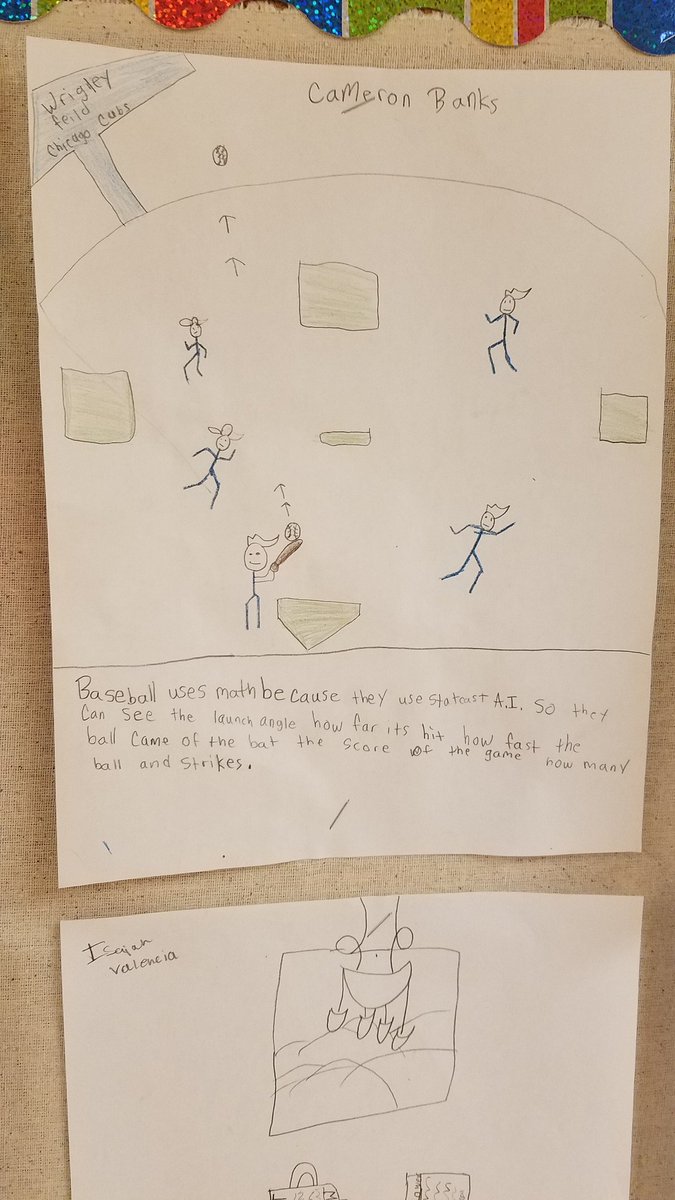 Cameron Banks
Wrigley
feild
Chicago Cubs
Baseball uses math because they use statcast A.I. So they
Can see the launch angle how far its hit how fast the
ball came of the bat the score of the game how many
ball and strikes.
Isaiah
Valencia